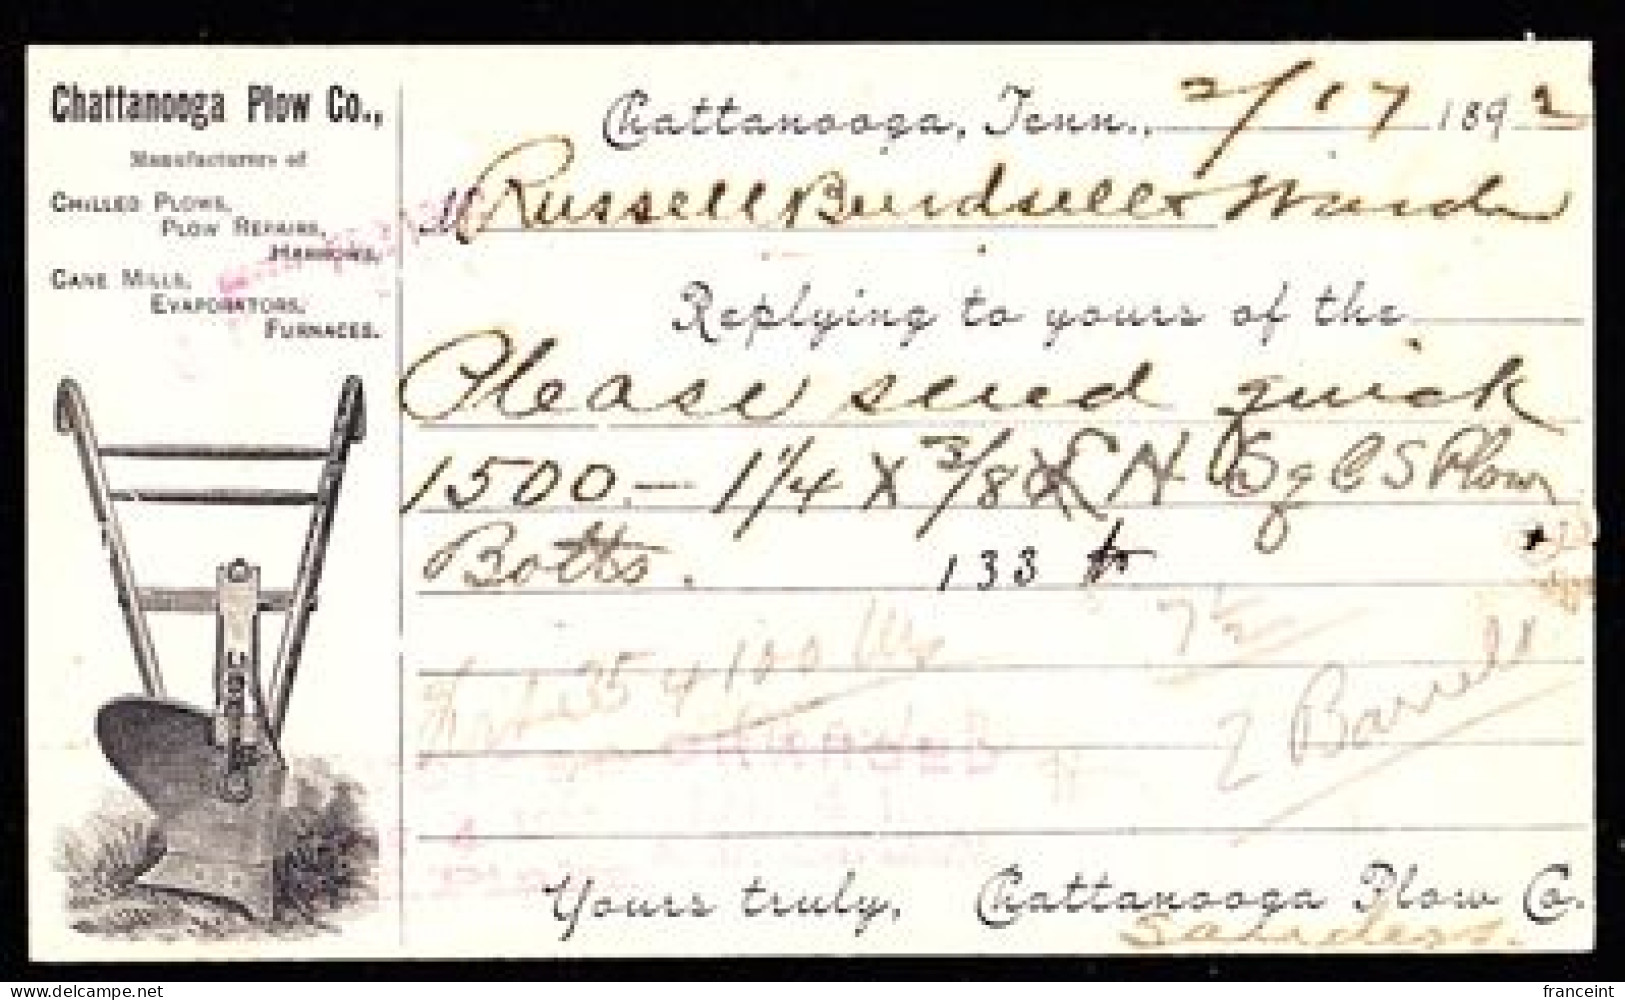 Chattanooga Plow Co.,
Manufacturers of
CHILLED PLOWS,
PLOW REPAIRS,
HARROWS,
CANE MILLS,
EVAPORATORS,
FURNACES.
Chattanooga, Tenn., 2/17 1892
M Russell Burdsell & Ward
Replying to yours of the
Please send quick
1500.— 1 1/4 X 3/8 N Sq C S Plow
Bolts. 133
35 4 100 lbs 7 1/2
2 Barrels
Yours truly, Chattanooga Plow Co.
Saunders.
delcampe.net
franceint